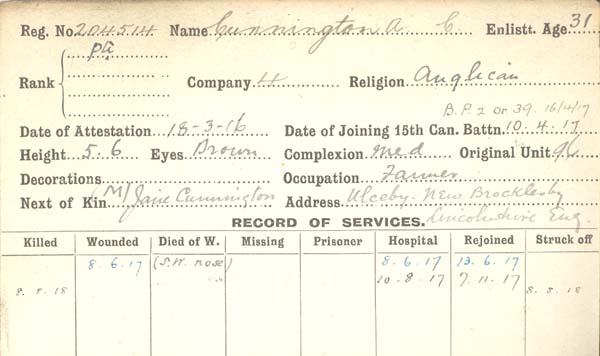 Reg. No. 204514 Name Cunnington A C Enlistt. Age 31
Rank Pte Company 4 Religion Anglican
B.P.2 or 39. 16/4/17
Date of Attestation 18-3-16 Date of Joining 15th Can. Battn. 10.4.17
Height 5.6 Eyes Brown Complexion med Original Unit 96
Decorations Occupation Farmer
Next of Kin (M) Jane Cunnington Address Ulceby. New Brocklesby
Lincolnshire Eng.
RECORD OF SERVICES.
Killed Wounded Died of W. Missing Prisoner Hospital Rejoined Struck off
8.6.17 (S.W. nose) 8.6.17 13.6.17
10.8.17 7.11.17
8.8.18 8.8.18